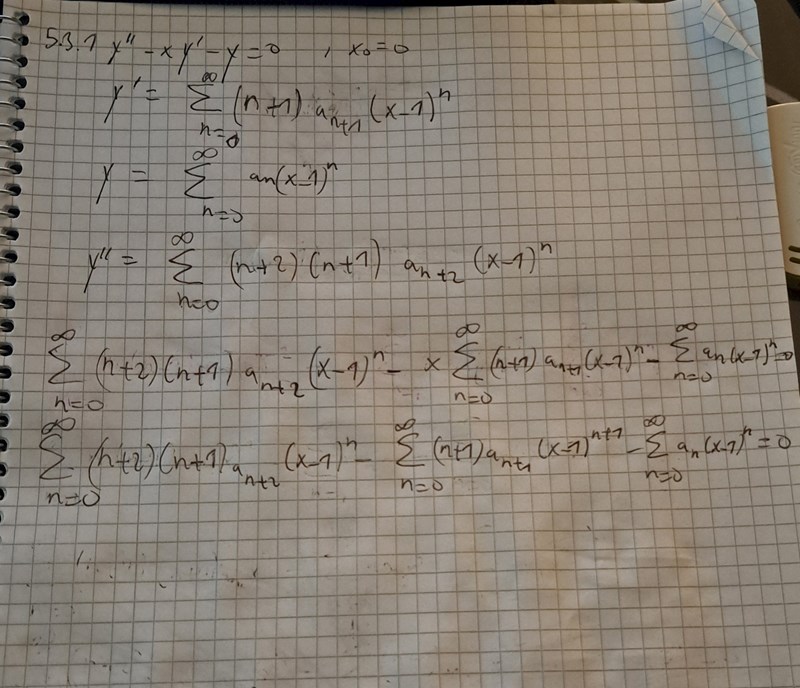 5.3.1 y'' - x y' - y = 0 , x₀ = 0
y' = ∑_{n=0}^{∞} (n+1) a_{n+1} (x-1)^n
y = ∑_{n=0}^{∞} an(x-1)^n
y'' = ∑_{n=0}^{∞} (n+2)(n+1) a_{n+2} (x-1)^n
∑_{n=0}^{∞} (n+2)(n+1) a_{n+2} (x-1)^n - x ∑_{n=0}^{∞} (n+1) a_{n+1} (x-1)^n - ∑_{n=0}^{∞} an(x-1)^n = 0
∑_{n=0}^{∞} (n+2)(n+1) a_{n+2} (x-1)^n - ∑_{n=0}^{∞} (n+1) a_{n+1} (x-1)^{n+1} - ∑_{n=0}^{∞} a_n (x-1)^n = 0